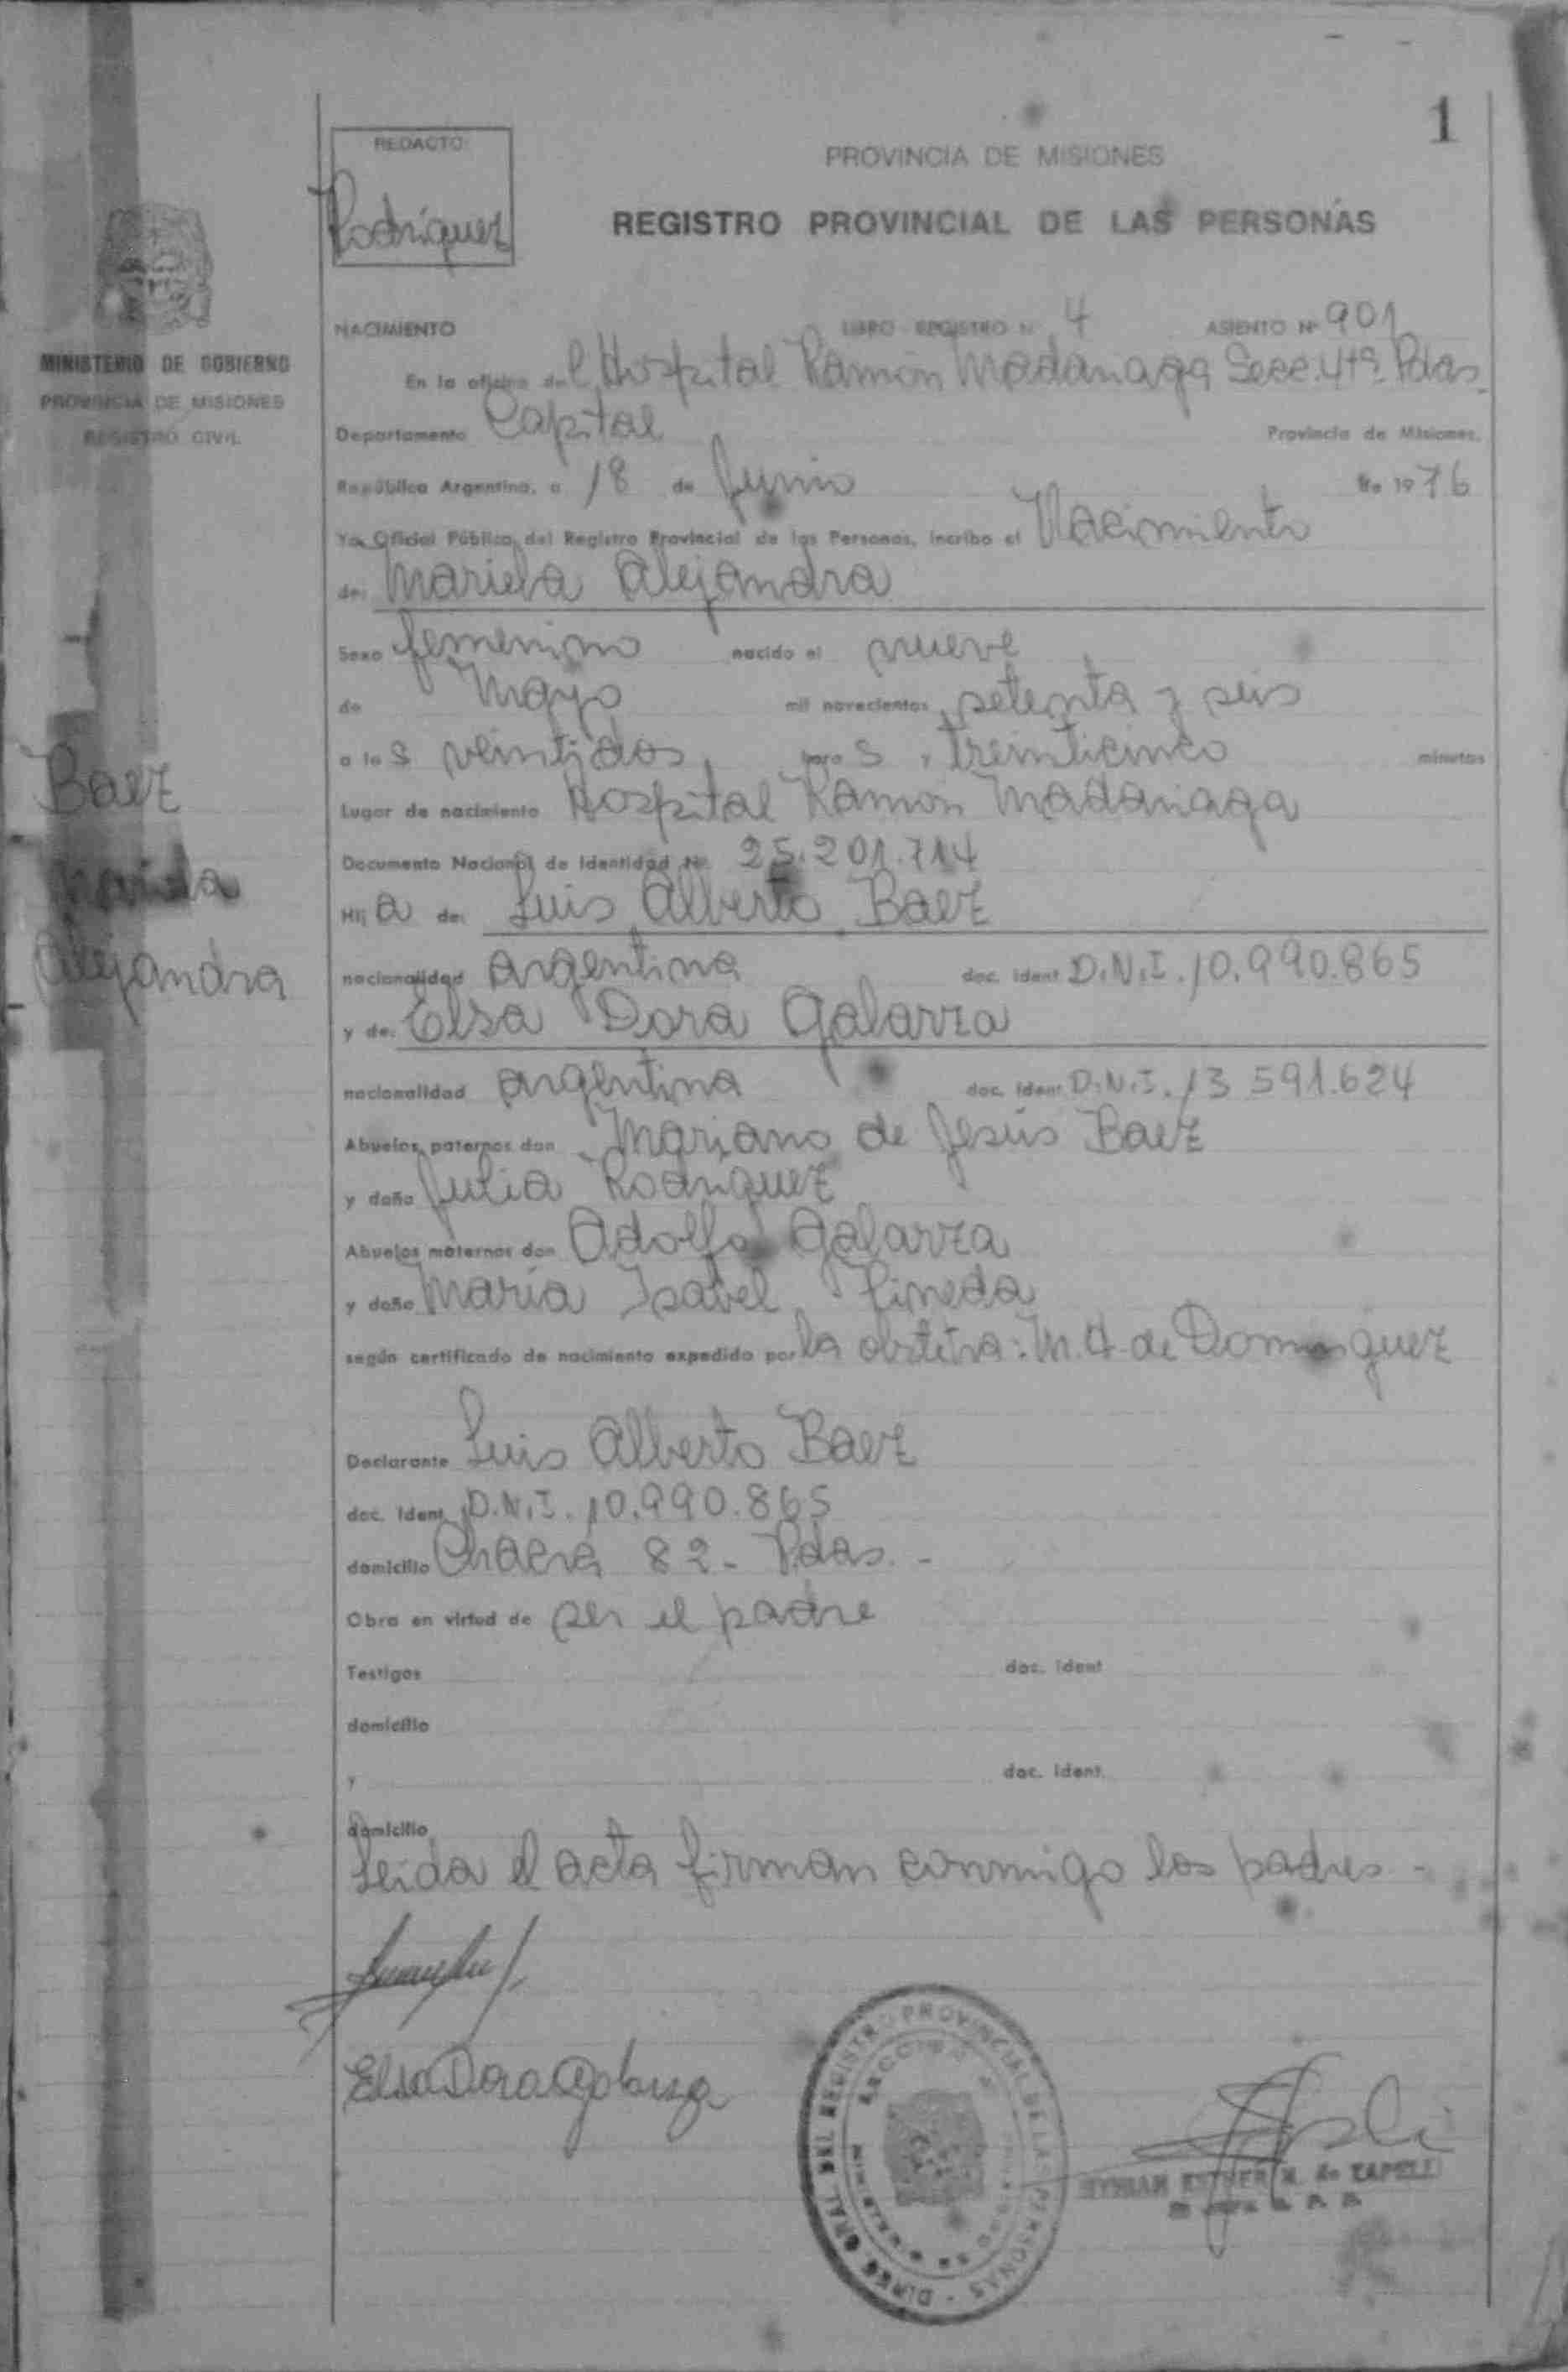 1
REDACTO
Rodríguez
PROVINCIA DE MISIONES
REGISTRO PROVINCIAL DE LAS PERSONAS
MINISTERIO DE GOBIERNO
PROVINCIA DE MISIONES
REGISTRO CIVIL
NACIMIENTO LIBRO REGISTRO N 4 ASIENTO Nº 901
En la oficina del Hospital Ramón Madariaga Secc. 4ta. Pdas.
Departamento Capital Provincia de Misiones.
República Argentina, a 18 de Junio de 1976
Yo, Oficial Público, del Registro Provincial de las Personas, inscribo el Nacimiento
de: Mariela Alejandra
Sexo femenino nacido el nueve
de Mayo mil novecientos setenta y seis
a las veintidos horas, treinticinco minutos
Lugar de nacimiento Hospital Ramón Madariaga
Documento Nacional de Identidad Nº 25.201.714
Hija de: Luis Alberto Baez
nacionalidad argentina doc. ident D.N.I. 10.990.865
y de: Elsa Dora Galarza
nacionalidad argentina doc. ident D.N.I. 13 591.624
Abuelos paternos don Mariano de Jesús Baez
y doña Julia Rodriguez
Abuelos maternos don Adolfo Galarza
y doña María Isabel Pineda
según certificado de nacimiento expedido por la obstetra: M. A. de Dominguez
Declarante Luis Alberto Baez
doc. ident. D.N.I. 10.990.865
domicilio Chacra 82 - Pdas. -
Obra en virtud de ser el padre
Testigos doc. ident
domicilio
y doc. ident.
domicilio
Leida el acta firman conmigo los padres -
Baez
Mariela
Alejandra
Elsa Dora Galarza
DIREC. GRAL. DEL REGISTRO PROVINCIAL DE LAS PERSONAS
MYRIAN ESTHER M. de ZAPELLI